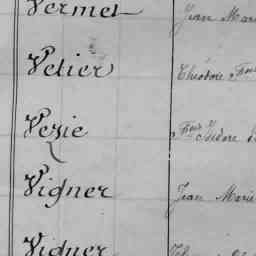 Vermel Jean Mari
Vetier Théodore
Vezie Isidore
Vigner Jean Marie
Vigner